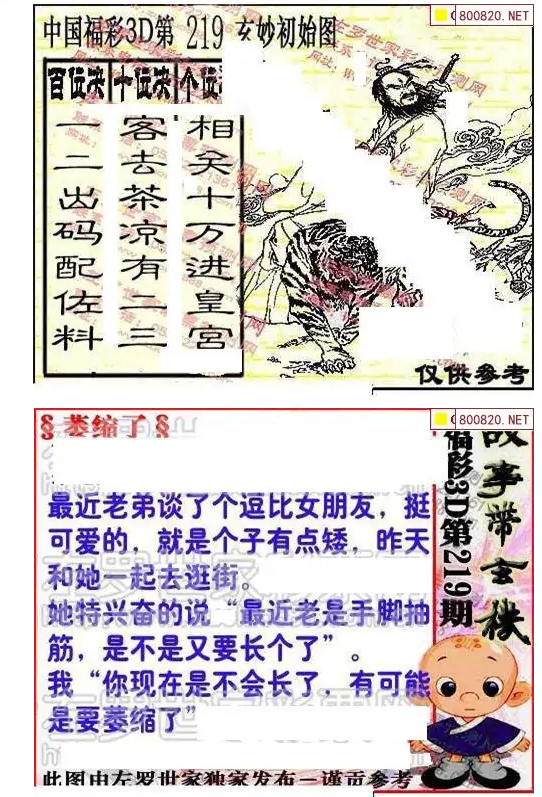 800820.NET
中国福彩3D第 219 玄妙初始图
百位决 十位决 个位
一二出码配佐料
客去茶凉有二三
相关十万进皇宫
仅供参考
800820.NET
§萎缩了§
最近老弟谈了个逗比女朋友，挺
可爱的，就是个子有点矮，昨天
和她一起去逛街。
她特兴奋的说“最近老是手脚抽
筋，是不是又要长个了”。
我“你现在是不会长了，有可能
是要萎缩了”
故事带玄机
福彩3D第219期
此图由左罗世家独家发布－谨贡参考